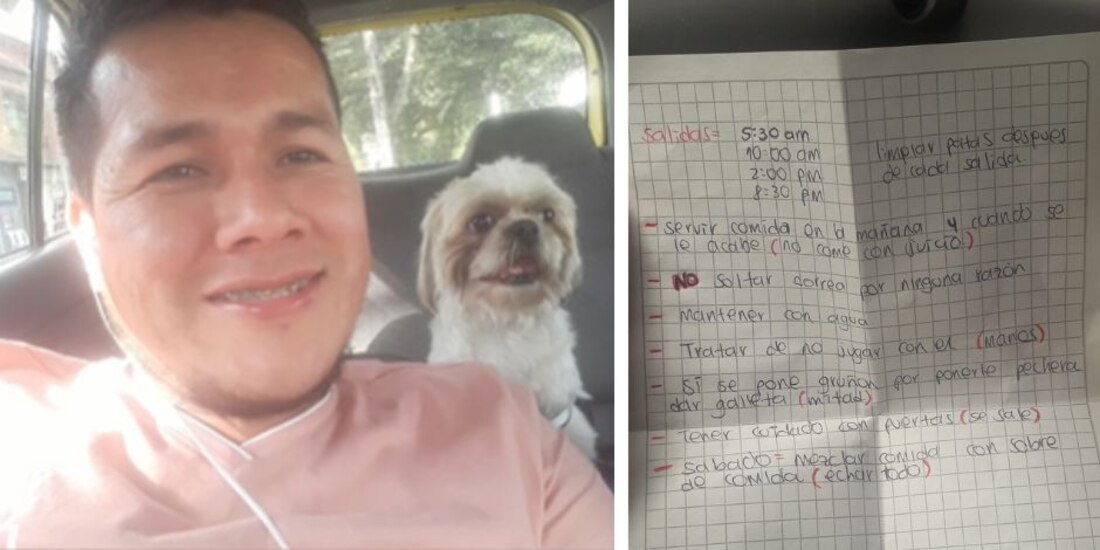 salidas= 5:30 am
10:00 am
2:00 PM
8:30 PM
limpiar patas despues
de cada salida
- servir comida en la mañana y cuando se
le acabe (no come con juicio)
- NO soltar correa por ninguna razón
- Mantener con agua
- Tratar de no jugar con el (manos)
- Si se pone gruñon por ponerle pechera
dar galleta (mitad)
- Tener cuidado con puertas (se sale)
- sabado= mezclar comida con sobre
de comida (echar todo)